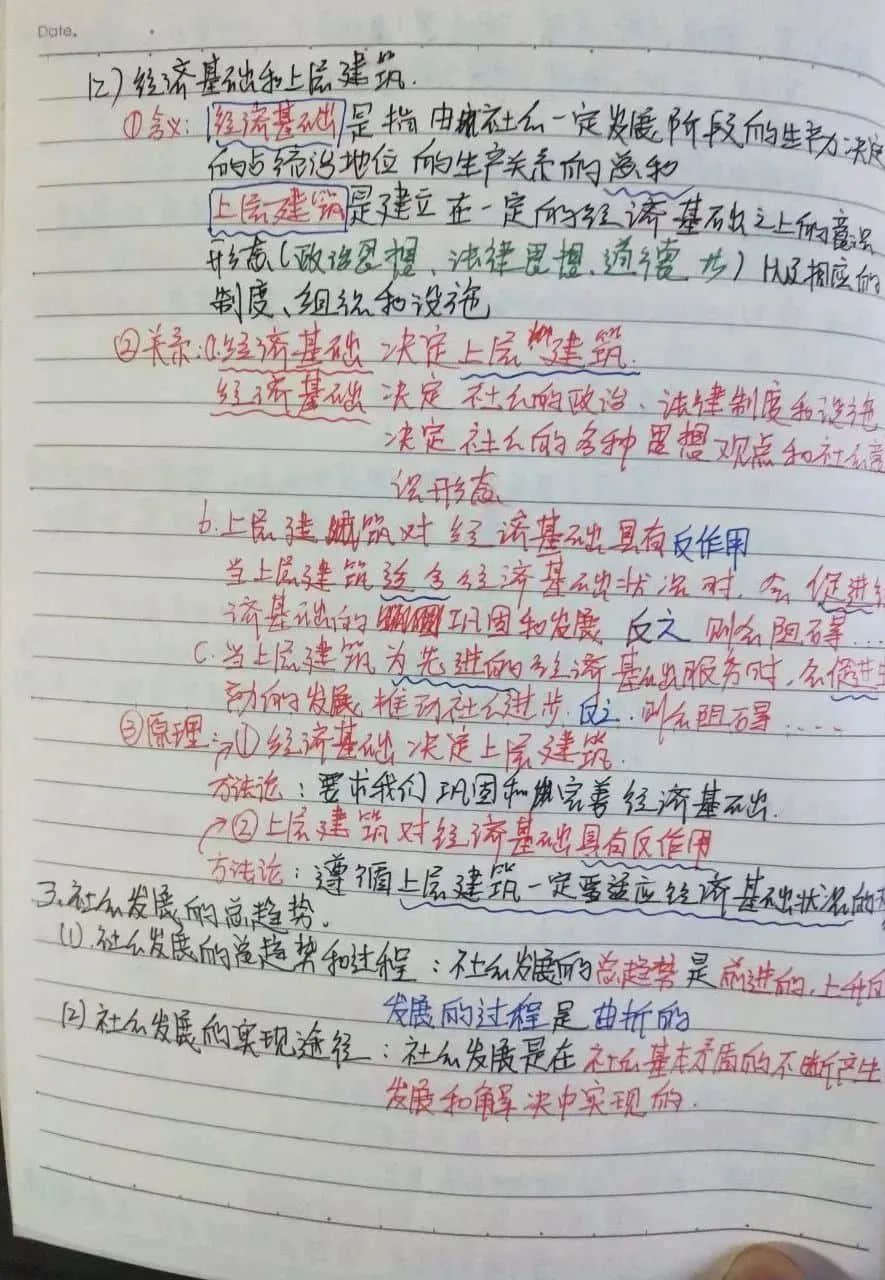 Date.
(2) 经济基础和上层建筑.
①含义: 经济基础是指由社会一定发展阶段的生产力决定
的占统治地位的生产关系的总和
上层建筑是建立在一定的经济基础之上的意识
形态(政治思想、法律思想、道德 等) 以及相应的
制度、组织和设施
②关系: a.经济基础 决定上层建筑.
经济基础 决定 社会的政治、法律制度和设施
决定 社会的各种思想观点和社会意
识形态
b.上层建筑对 经济基础具有反作用
当上层建筑适合经济基础状况时, 会促进经
济基础的巩固和发展 反之 则会阻碍…
c.当上层建筑为先进的经济基础服务时, 会促进生
力的发展, 推动社会进步. 反之. 则会阻碍……
③原理: ①经济基础决定上层建筑.
方法论: 要求我们巩固和完善经济基础.
②上层建筑对经济基础具有反作用
方法论: 遵循上层建筑一定要适应经济基础状况的
3.社会发展的总趋势.
(1).社会发展的总趋势和过程: 社会发展的总趋势是前进的,上升的
发展的过程是曲折的
(2)社会发展的实现途径: 社会发展是在社会基本矛盾的不断产生
发展和解决中实现的.